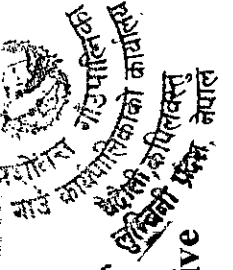 गाउँपालिका
गाउँ कार्यपालिकाको कार्यालय
कपिलवस्तु
लुम्बिनी प्रदेश, नेपाल
ive